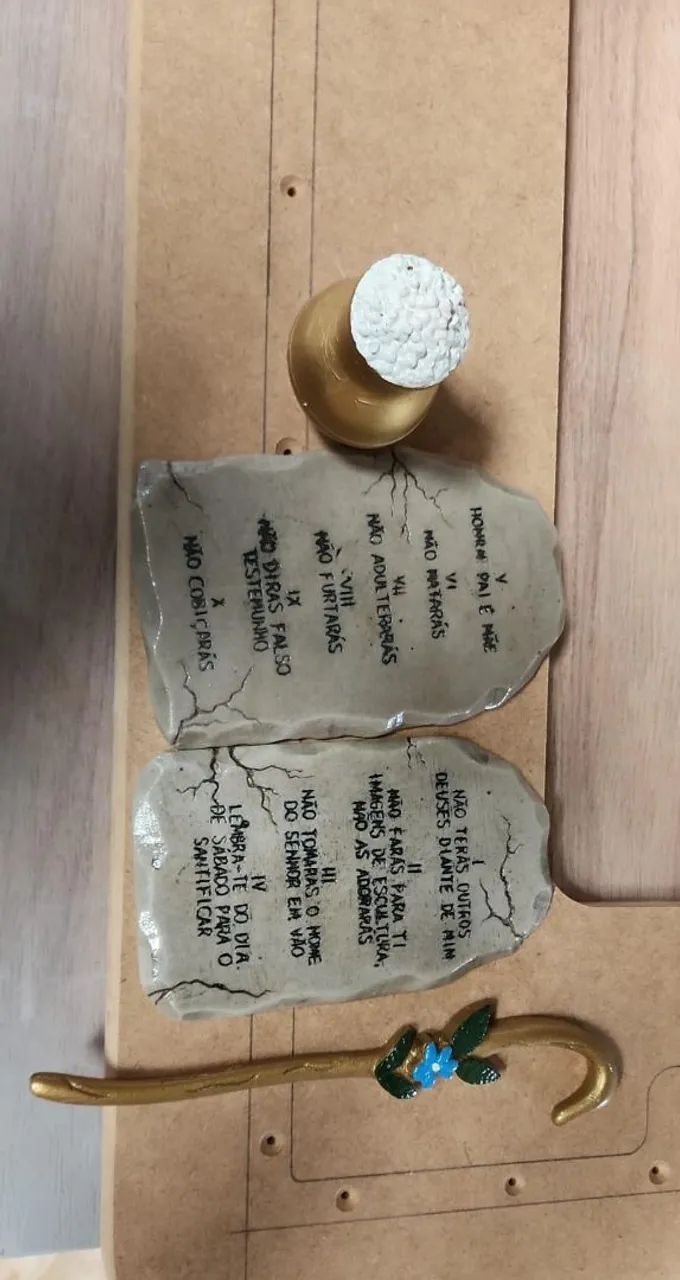 I
NÃO TERÁS OUTROS
DEUSES DIANTE DE MIM
II
NÃO FARÁS PARA TI
IMAGENS DE ESCULTURA,
NÃO AS ADORARÁS
III
NÃO TOMARÁS O NOME
DO SENHOR EM VÃO
IV
LEMBRA-TE DO DIA
DE SÁBADO PARA O
SANTIFICAR
V
HONRA PAI E MÃE
VI
NÃO MATARÁS
VII
NÃO ADULTERARÁS
VIII
NÃO FURTARÁS
IX
NÃO DIRAS FALSO
TESTEMUNHO
X
NÃO COBIÇARÁS